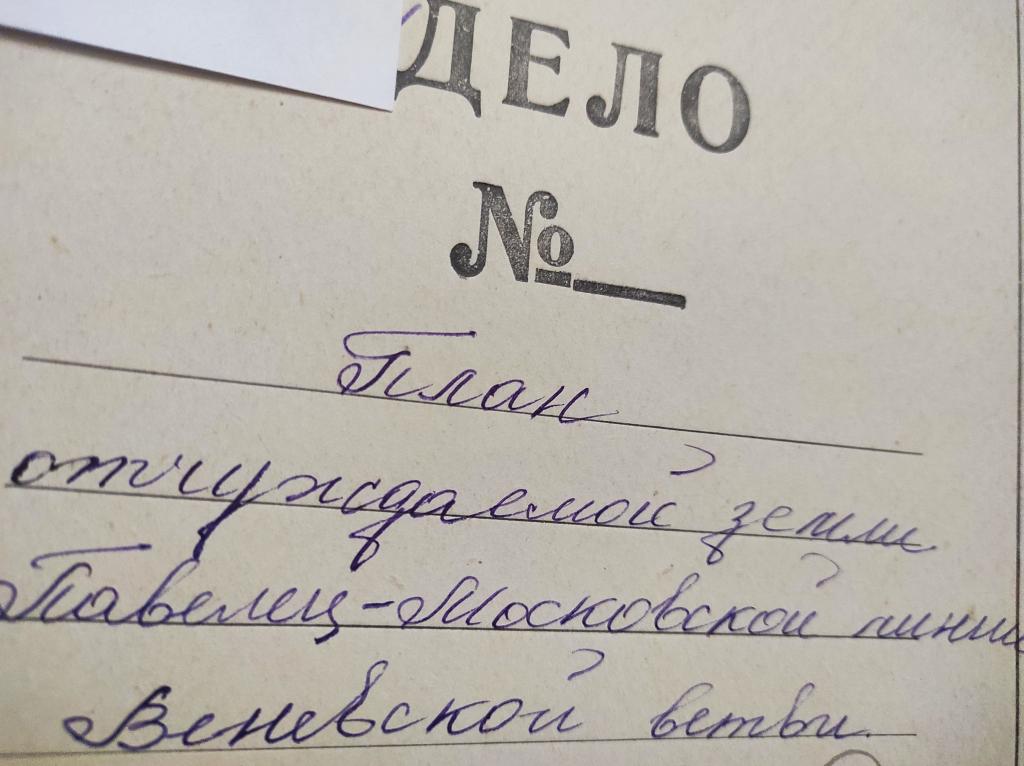 ДЕЛО
№
План
отчуждаемой земли
Павелец-Московской линии
Веневской ветви.